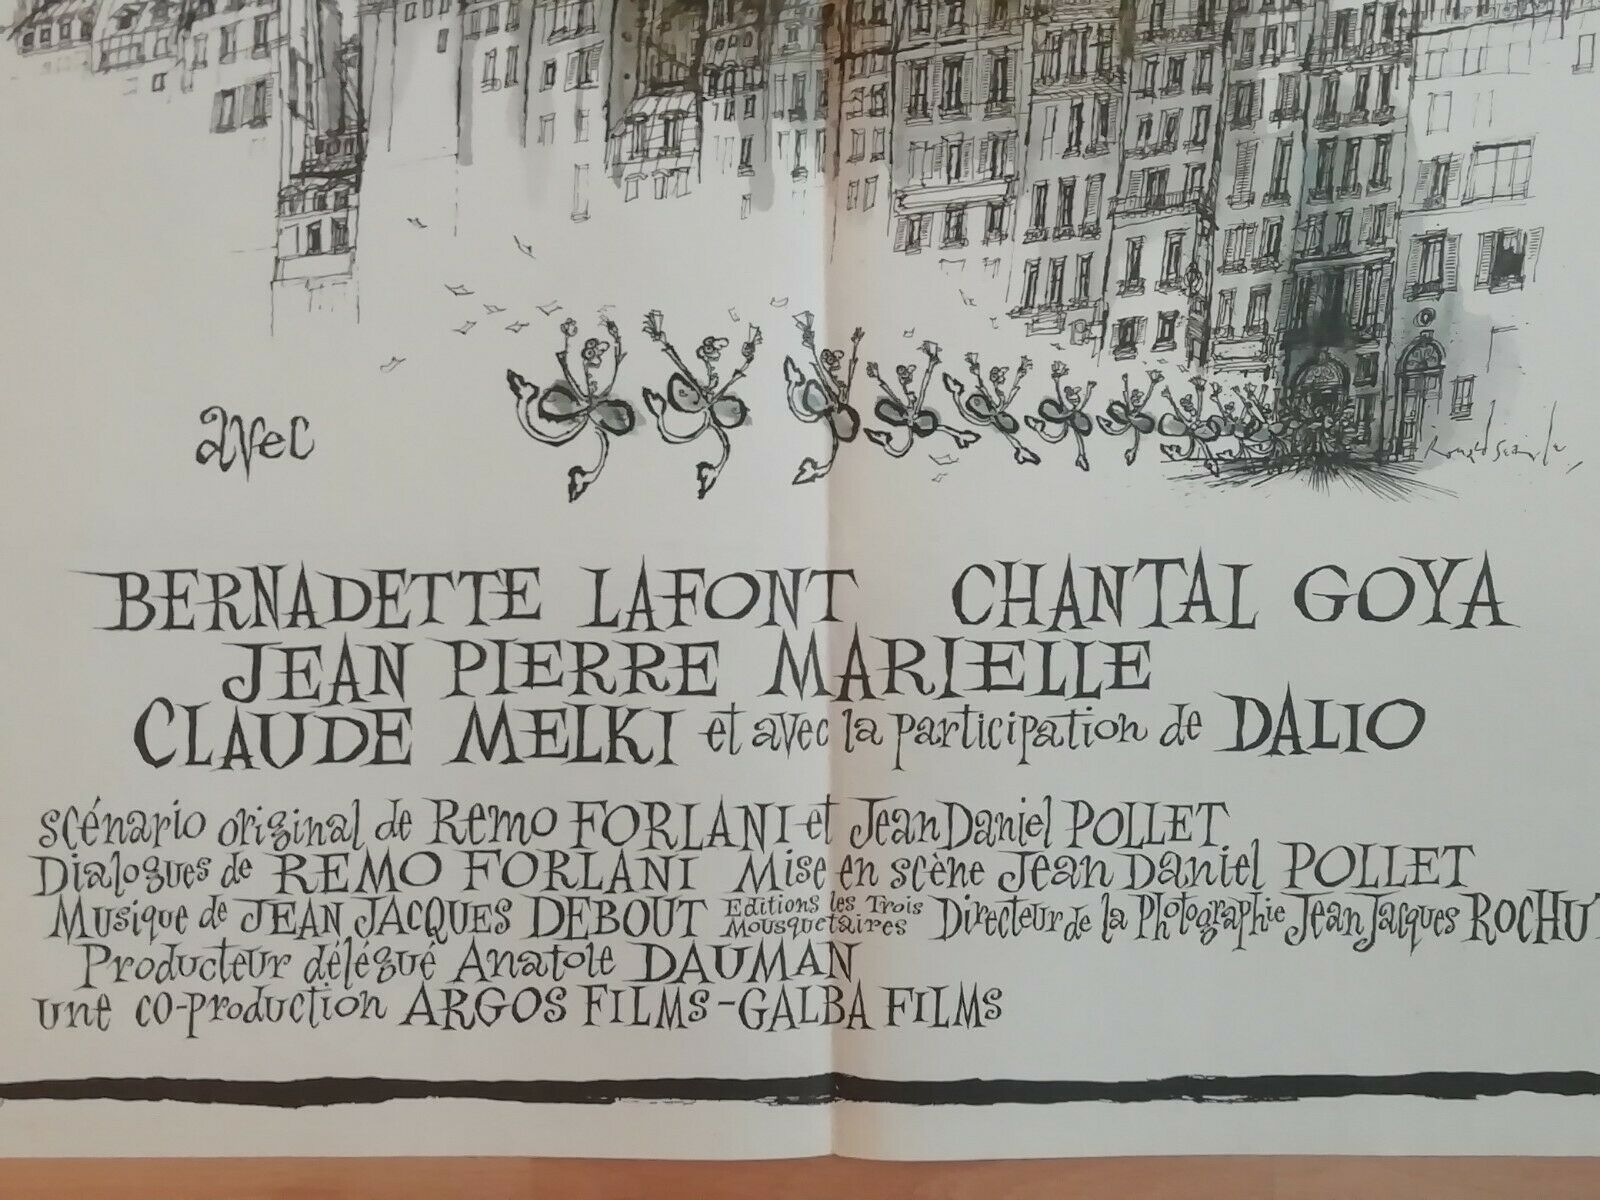 avec
Ronald Searle
BERNADETTE LAFONT CHANTAL GOYA
JEAN PIERRE MARIELLE
CLAUDE MELKI et avec la participation de DALIO
scénario original de Remo FORLANI et Jean Daniel POLLET
Dialogues de REMO FORLANI Mise en scène Jean Daniel POLLET
Musique de JEAN JACQUES DEBOUT Editions les Trois Mousquetaires Directeur de la Photographie Jean Jacques ROCHUT
Producteur délégué Anatole DAUMAN
une co-production ARGOS FILMS-GALBA FILMS